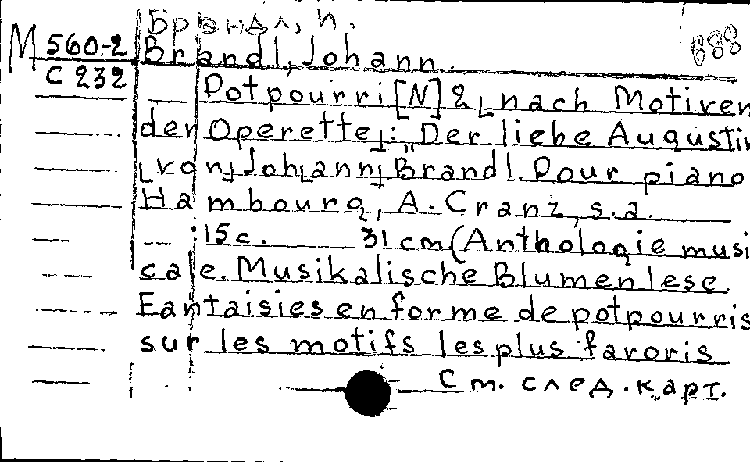 Брандл, И.
888
М 560-2
С 232
Brandl, Johann.
Potpourri [N] 2, [nach Motiven
der Operette]: „Der liebe Augustin
[von] Joh[ann] Brandl. Pour piano
Hambourg, A. Cranz, s.a.
15 c. 31 cm (Anthologie musi
cale. Musikalische Blumenlese
Fantaisies en forme de potpourris
sur les motifs les plus favoris
См. след. карт.